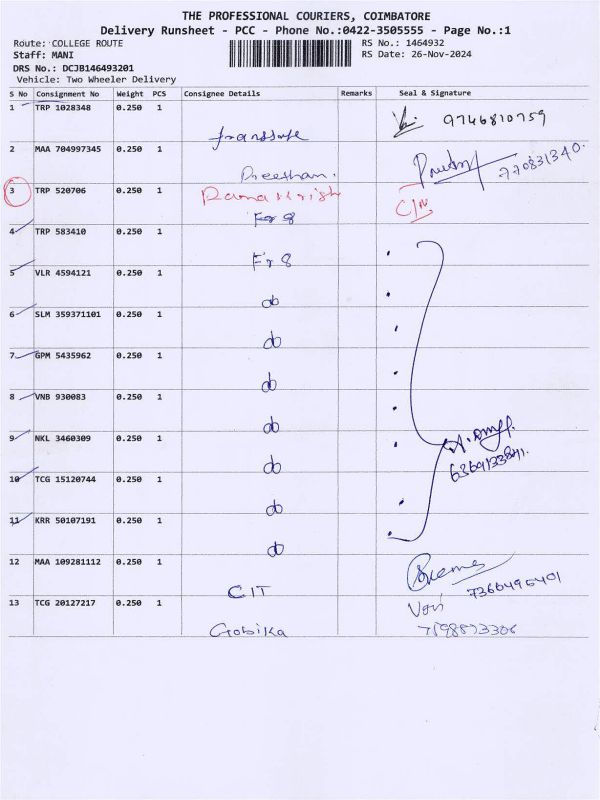 THE PROFESSIONAL COURIERS, COIMBATORE
Delivery Runsheet - PCC - Phone No.:0422-3505555 - Page No.:1
Route: COLLEGE ROUTE
RS No.: 1464932
Staff: MANI
RS Date: 26-Nov-2024
DRS No.: DCJB146493201
Vehicle: Two Wheeler Delivery
S No Consignment No Weight PCS Consignee Details Remarks Seal & Signature
1 TRP 1028348 0.250 1
9746810759
2 MAA 704997345 0.250 1
Preethan.
3 TRP 520706 0.250 1
Ramakrish
4 TRP 583410 0.250 1
Fr 8
5 VLR 4594121 0.250 1
do
6 SLM 359371101 0.250 1
do
7 GPM 5435962 0.250 1
do
8 VNB 930083 0.250 1
do
9 NKL 3460309 0.250 1
do
10 TCG 15120744 0.250 1
do
11 KRR 50107191 0.250 1
do
12 MAA 109281112 0.250 1
CIT
7360495401
13 TCG 20127217 0.250 1
Gobika